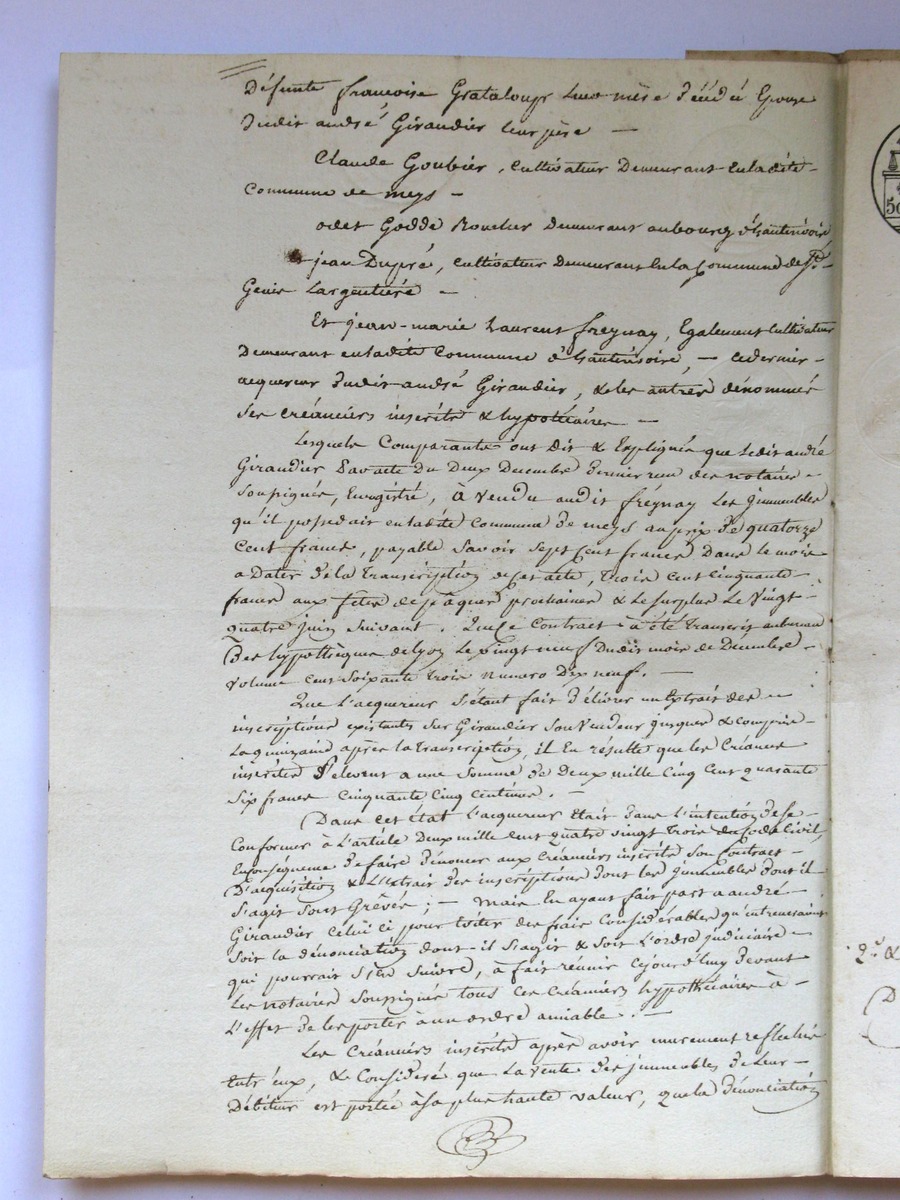 Défunte francoise Grataloup leur mère décédée Epouse
dudit andré Giraudier leur père —
Claude Goubier, cultivateur Demeurant enladite
Commune de meys —
odet Godde Demeurant aubourg d'hauterivoire
jean Dupré, cultivateur Demeurant enla Commune de St.
Genis Largentière —
Et jean-marie Laurent freynay, Egalement cultivateur
Demeurant enladite Commune d'hauterivoire, — cedernier
acquereur dudit andré Giraudier, & les autres dénommés
ses créanciers inscrits & hypothécaires —
Lesquels Comparants ont dit & Expliqué que ledit andré
Giraudier par acte du Deux Decembre dernier reçu des notaires
soussignés, Enregistré, à vendu audit freynay Les jmmeubles
qu'il possedait enladite commune de meys au prix de quatorze
Cent francs, payable Savoir sept Cent francs Dans le mois
a Dater de la transcription decet acte, trois cent cinquante
francs aux fêtes de pâques prochaines & le surplus Le vingt
quatre juin Suivant. Que ce Contract à été transcrit aubureau
Des hypothèques de lyon le vingt neuf Dudit mois de Decembre
volume cent soixante trois numero Dix neuf. —
Que L'acquereur s'étant fait délivrer un Extrait des
inscriptions existantes sur Giraudier son Vendeur jusques & compris
La quinzaine après la transcription, il En résulte que les Créances
inscrites s'élevent a une somme de deux mille Cinq Cent quarante
six francs Cinquante Cinq Centimes. —
Dans cet état L'acquereur était dans L'intention de se
Conformer à L'article Deux mille cent quatre vingt trois du Code Civil,
En conséquence de faire dénoncer aux créanciers inscrits son Contract
D'acquisition & L'extrait des inscriptions dont les jmmeubles dont il
s'agit sont Grévés; — mais En ayant fait part a andré
Giraudier Celui ci pour éviter des frais Considérables qu'entrenerait
soit la dénonciation dont il s'agit & soit L'ordre judiciaire
qui pourrait s'en suivre, à fait réunir cejourd'huy devant
Les notaires soussignés tous ces Créanciers hypothécaires à
L'effet de les porter à un ordre amiable. —
Les Créanciers inscrits après avoir murement reflechis
Entr'eux, & Considéré que la vente des jmmeubles de Leur
Débiteur est portée à sa plus haute valeur, que la dénonciation
50